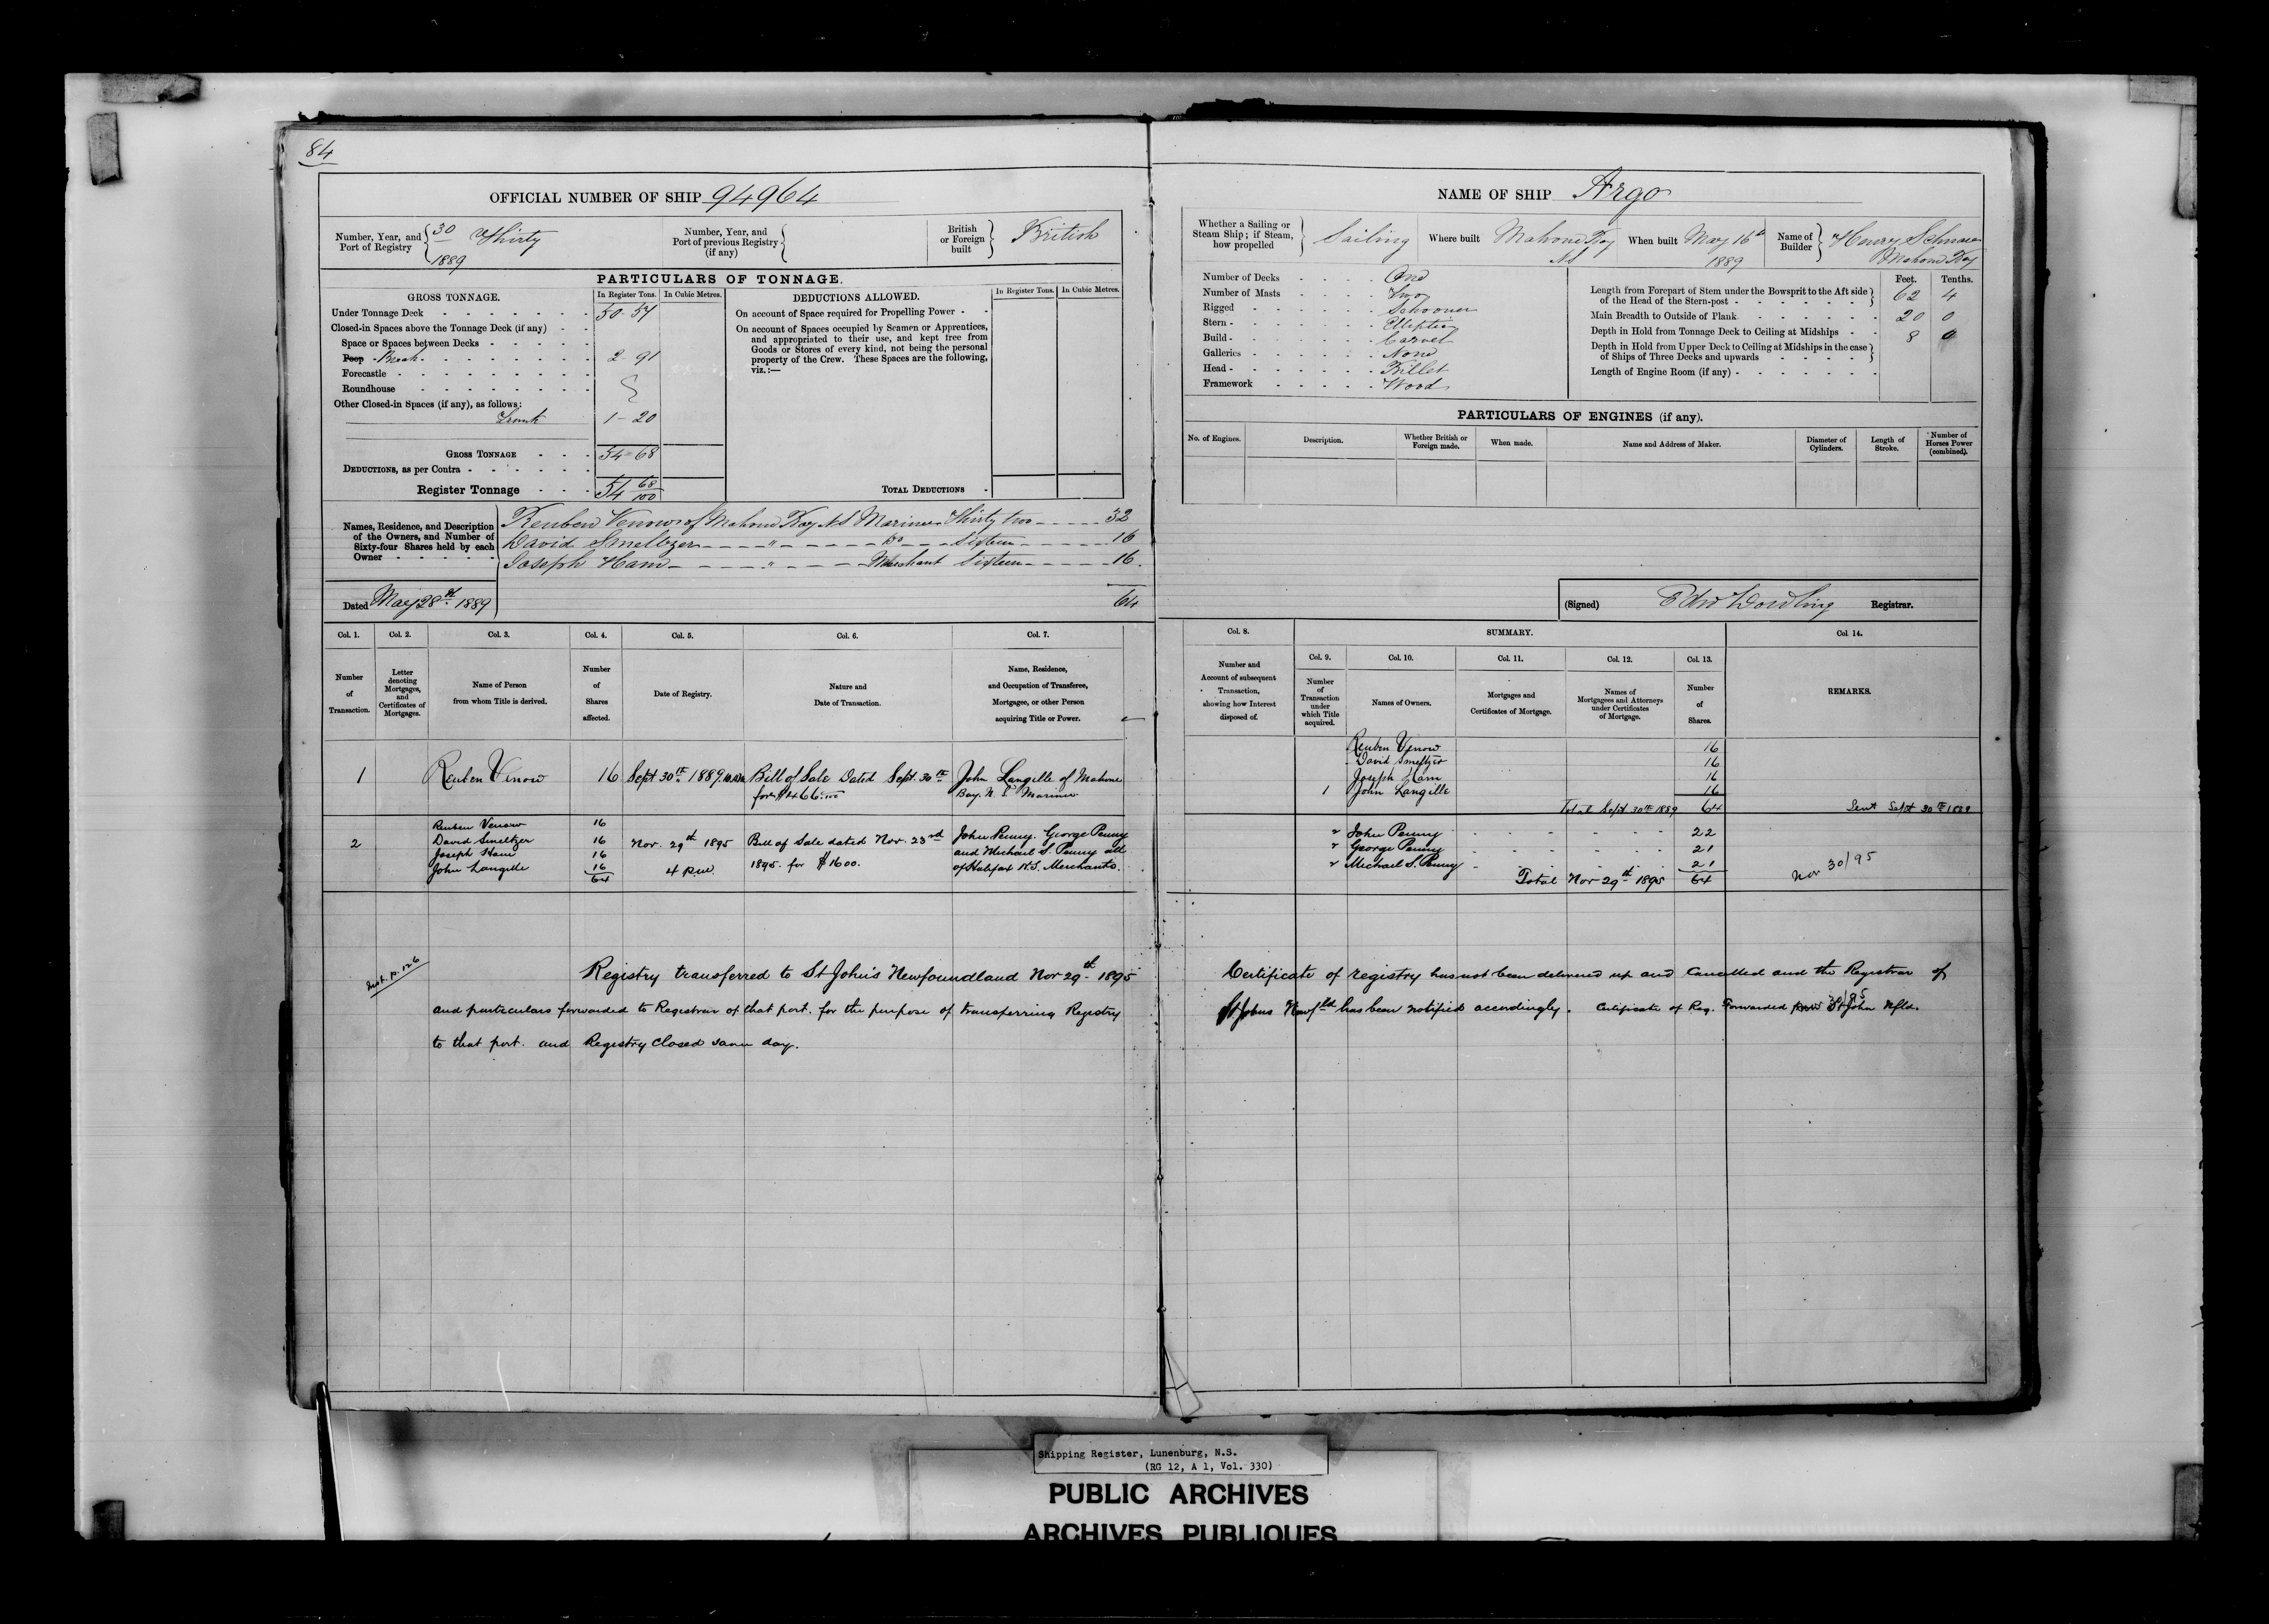 84
OFFICIAL NUMBER OF SHIP 94964
Number, Year, and Port of Registry { 30 Thirty
1889
Number, Year, and Port of previous Registry (if any) {
British or Foreign built } British
PARTICULARS OF TONNAGE.
GROSS TONNAGE.
In Register Tons. In Cubic Metres.
DEDUCTIONS ALLOWED.
In Register Tons. In Cubic Metres.
Under Tonnage Deck 50-57
Closed-in Spaces above the Tonnage Deck (if any)
Space or Spaces between Decks
Poop Break 2-91
Forecastle
Roundhouse
Other Closed-in Spaces (if any), as follows:
Trunk 1-20
GROSS TONNAGE 54=68
DEDUCTIONS, as per Contra
Register Tonnage 54 68/100
On account of Space required for Propelling Power
On account of Spaces occupied by Seamen or Apprentices,
and appropriated to their use, and kept free from
Goods or Stores of every kind, not being the personal
property of the Crew. These Spaces are the following,
viz.:—
TOTAL DEDUCTIONS
Names, Residence, and Description
of the Owners, and Number of
Sixty-four Shares held by each
Owner
Reuben Venow of Mahone Bay N S Mariner Thirty two 32
David Smeltzer " Do Sixteen 16
Joseph Ham " Merchant Sixteen 16
64
Dated May 28th 1889
Col. 1. Col. 2. Col. 3. Col. 4. Col. 5. Col. 6. Col. 7.
Number of Transaction.
Letter denoting Mortgages, and Certificates of Mortgages.
Name of Person from whom Title is derived.
Number of Shares affected.
Date of Registry.
Nature and Date of Transaction.
Name, Residence, and Occupation of Transferee, Mortgagee, or other Person acquiring Title or Power.
1 Reuben Venow 16 Sept 30th 1889 Bill of Sale Dated Sept. 30th John Langille of Mahone
for $466.00 Bay. N. S. Mariner
2
Reuben Venow 16
David Smeltzer 16
Joseph Ham 16
John Langille 16
64
Nov. 29th 1895
4 p.m.
Bill of Sale dated Nov. 23rd
1895. for $1600.
John Penny. George Penny
and Michael S. Penny all
of Halifax N.S. Merchants.
Registry transferred to St John's Newfoundland Nov 29th 1895
and particulars forwarded to Registrar of that port. for the purpose of transferring Registry
to that port. and Registry Closed same day.
NAME OF SHIP Argo
Whether a Sailing or Steam Ship; if Steam, how propelled } Sailing
Where built Mahone Bay
NS
When built May 16th
1889
Name of Builder } Henry
Mahone Bay
Number of Decks One
Number of Masts Two
Rigged Schooner
Stern Elliptic
Build Carvel
Galleries None
Head Billet
Framework Wood
Feet. Tenths.
Length from Forepart of Stem under the Bowsprit to the Aft side
of the Head of the Stern-post } 62 4
Main Breadth to Outside of Plank 20 0
Depth in Hold from Tonnage Deck to Ceiling at Midships 8 0
Depth in Hold from Upper Deck to Ceiling at Midships in the case
of Ships of Three Decks and upwards }
Length of Engine Room (if any)
PARTICULARS OF ENGINES (if any).
No. of Engines.
Description.
Whether British or Foreign made.
When made.
Name and Address of Maker.
Diameter of Cylinders.
Length of Stroke.
Number of Horses Power (combined).
(Signed) Edw Dowling Registrar.
Col. 8. SUMMARY. Col. 14.
Col. 9. Col. 10. Col. 11. Col. 12. Col. 13.
Number and Account of subsequent Transaction, showing how Interest disposed of.
Number of Transaction under which Title acquired.
Names of Owners.
Mortgages and Certificates of Mortgage.
Names of Mortgagees and Attorneys under Certificates of Mortgage.
Number of Shares.
REMARKS.
Reuben Venow 16
David Smeltzer 16
Joseph Ham 16
1 John Langille 16
Total Sept 30th 1889 64 Sent Sept 30th 1889
2 John Penny 22
2 George Penny 21
2 Michael S. Penny 21
Total Nov 29th 1895 64
Nov 30/95
Certificate of registry has not been delivered up and Cancelled and the Registrar of
St Johns Newfld has been notified accordingly. Certificate of Reg. Forwarded St John Nfld.
Shipping Register, Lunenburg, N.S.
(RG 12, A 1, Vol. 330)
PUBLIC ARCHIVES
ARCHIVES PUBLIQUES